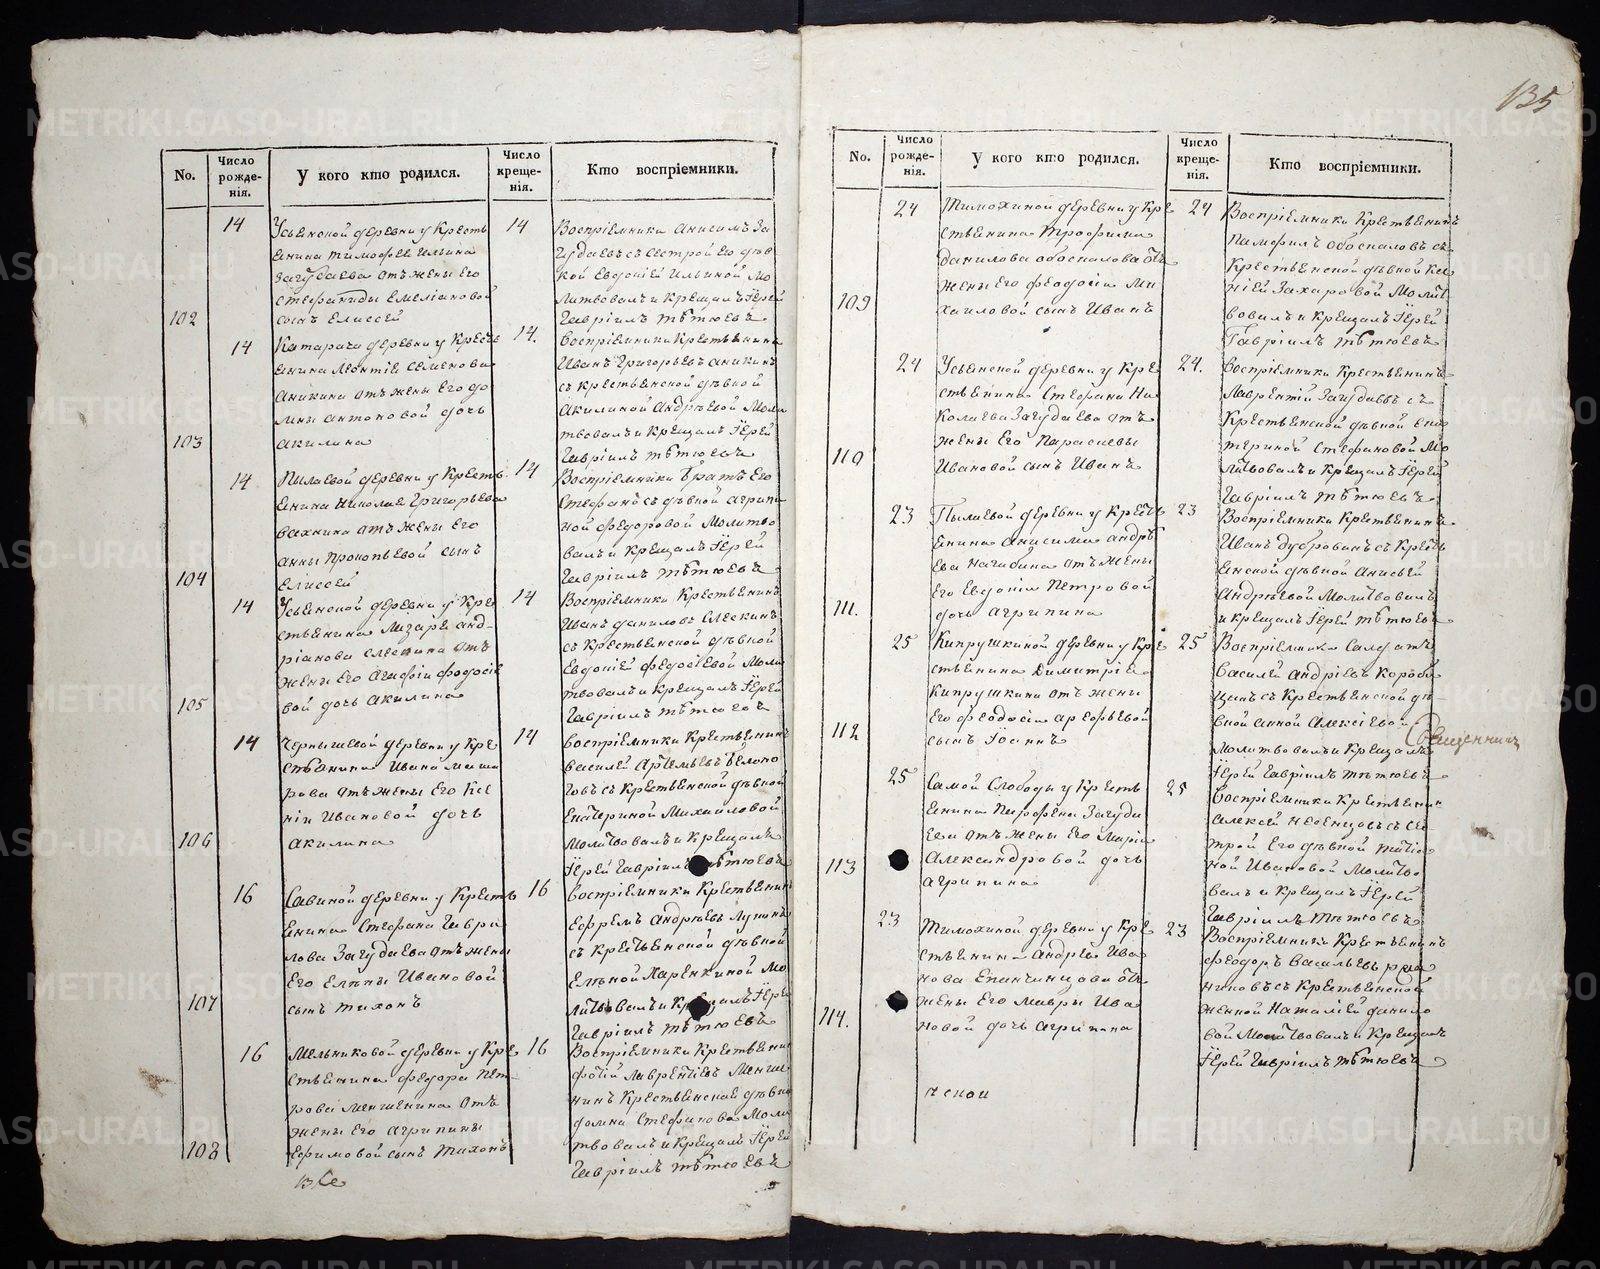 135
No.
Число рожде-нія.
У кого кто родился.
Число креще-нія.
Кто воспріемники.
102
14
Усьенской деревни у кресть
енина тимофее ильина
Загудаева отъ жены его
стефаниды Емеліановой
сынъ Елиссей
14
Воспріемники Анисимъ За
гудаевъ съ сестрой его дѣв
кой Евдокіей Ильиной Мо
литвовалъ и крещалъ Іерей
Гавріилъ тѣтюевъ
103
14
Катарача деревни у кресть
енина леонтіе семенова
аникина отъ жены его до
мны антоновой дочь
акилина
14.
воспріемники крестьянинъ
Иванъ Григорьевъ аникинъ
съ крестьенской дѣвкой
акилиной Андрѣевой Моли
твовалъ и крещалъ Іерей
Гавріилъ тѣтюевъ
104
14
Пылаевой деревни у кресть
енина николае Григорьева
вахнина отъ жены его
анны прокопьевой сынъ
Елиссей
14
Воспріемники братъ его
Стефанъ съ дѣвкой агрипи
ной федоровой Молитво
валъ и крещалъ Іерей
Гавріилъ тѣтюевъ
105
14
Усьенской деревни у кре
стьенина Лазаре анд-
ріанова отъ
жены его Агафіи федосѣе
вой дочь акилина
14
Воспріемники крестьенинъ
Иванъ даниловъ
съ крестьенской дѣвкой
Евдокіей федосѣевой Моли
твовалъ и крещалъ Іерей
Гавріилъ тѣтюевъ
106
14
Чернышевой деревни у кре
стьенина Ивана
отъ жены его ксе
ніи Ивановой дочь
акилина
14
воспріемники крестьенинъ
василей Артемьевъ
съ крестьенской дѣвкой
Екатериной Михайловой
Молитвовалъ и крещалъ
Іерей Гавріилъ тѣтюевъ
107
16
Савиной деревни у кресть
енина Стефана Гаври
лова Загудаева отъ жены
его Елены Ивановой
сынъ тихонъ
16
воспріемники крестьенинъ
Ефремъ андрѣевъ
съ крестьенской дѣвкой
Еленой Ларенкиной Мо
литвовалъ и крещалъ Іерей
Гавріилъ тѣтюевъ
108
16
Мельниковой деревни у кре
стьенина федора пет-
рова меншенина отъ
жены его агрипины
Ефимовой сынъ тихонъ
16
Воспріемники крестьенинъ
фотій лаврентіевъ Менше
нинъ крестьенская дѣвка
домна Стефанова Моли
твовалъ и крещалъ Іерей
Гавріилъ тѣтюевъ
No.
Число рожде-нія.
У кого кто родился.
Число креще-нія.
Кто воспріемники.
109
24
Тимохиной деревни у кре
стьенина трофима
данилова обоскалова отъ
жены его феодосіи Ми
хаиловой сынъ Иванъ
24
Воспріемники крестьенинъ
памфилъ обоскаловъ съ
крестьенской дѣвкой Ксе
ніей Захаровой Молит
вовалъ и крещалъ Іерей
Гавріилъ тѣтюевъ
110
24
Усьенской деревни у кре
стьенина Стефана Ни
колаева Загудаева отъ
жены его параскевы
Ивановой сынъ Иванъ
24.
воспріемники крестьенинъ
Лаврентій Загудаевъ съ
крестьенской дѣвкой Ека
териной Стефановой Мо
литвовалъ и крещалъ Іерей
Гавріилъ тѣтюевъ
111.
23
Пылаевой деревни у кресть
енина анисима андрѣ
ева нагибина отъ жены
его Евдокіи петровой
дочь агрипина
23
Воспріемники крестьенинъ
Иванъ дубровинъ съ кресть
енской дѣвкой Анисьей
Андрѣевой Молитвовалъ
и крещалъ Іерей тѣтюевъ
112
25
Кипрушкиной деревни у кре
стьенина Димитріе
кипрушкина отъ жены
его феодосіи арефьевой
сынъ Іоаннъ
25
Воспріемники Салдатъ
Василей андріевъ
съ крестьенской дѣ
вкой анной Алексіевой Священникъ
Молитвовалъ и крещалъ
Іерей Гавріилъ тѣтюевъ
113
25
Самой Слободы у кресть
енина Парфена Загуда
ева отъ жены его Маріи
Александровой дочь
агрипина
25
Воспріемники крестьенинъ
Алексей съ сес
трой его дѣвкой татіа
ной Ивановой Молитво
валъ и крещалъ Іерей
Гавріилъ тѣтюевъ
114.
23
Тимохиной деревни у кре
стьенина Андрее Ива
нова Епанчинцова отъ
жены его мавры Ива
новой дочь агрипина
23
Воспріемники крестьенинъ
феодоръ Васильевъ
съ крестьенской
женкой Наталіей данило
вой Молитвовалъ и крещалъ
Іерей Гавріилъ тѣтюевъ